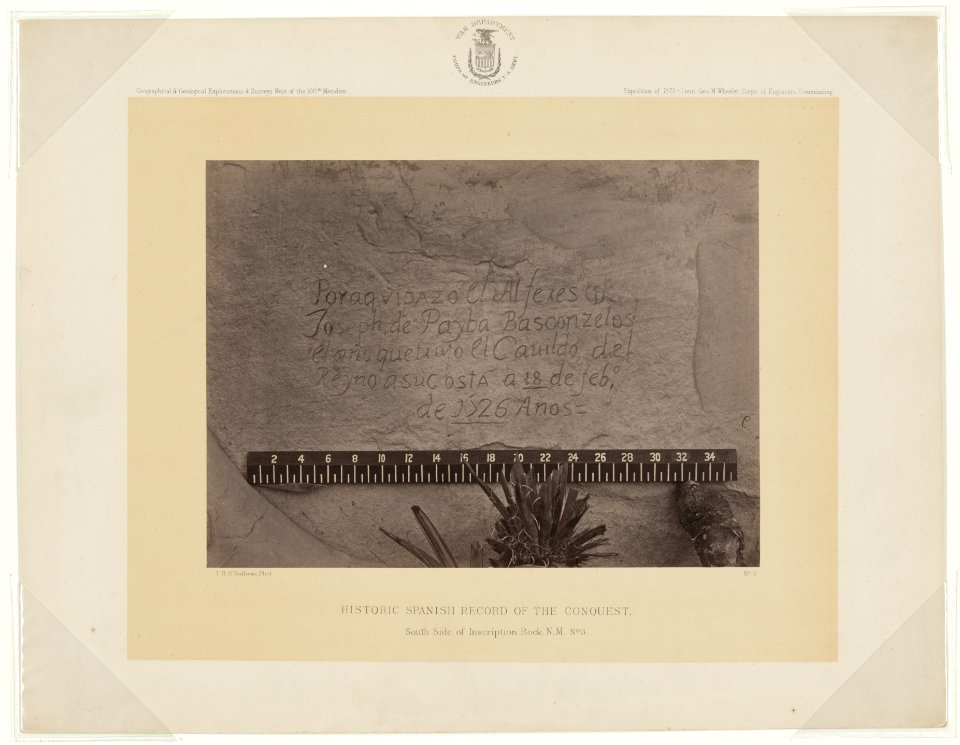 WAR DEPARTMENT
CORPS OF ENGINEERS U.S. ARMY.
Geographical & Geological Explorations & Surveys West of the 100th Meridian.
Expedition of 1873 - Lieut. Geo. M. Wheeler, Corps of Engineers, Commanding.
Por aqui pazo el Alferes Dn
Joseph de Payba Basconzelos
el año que tujo el Cauildo, del
Reyno a su costa a 18 de feb.o
de 1726 Años=
2 4 6 8 10 12 14 16 18 20 22 24 26 28 30 32 34
T. H. O'Sullivan, Phot.
No 3.
HISTORIC SPANISH RECORD OF THE CONQUEST,
South Side of Inscription Rock, N.M. No 3.